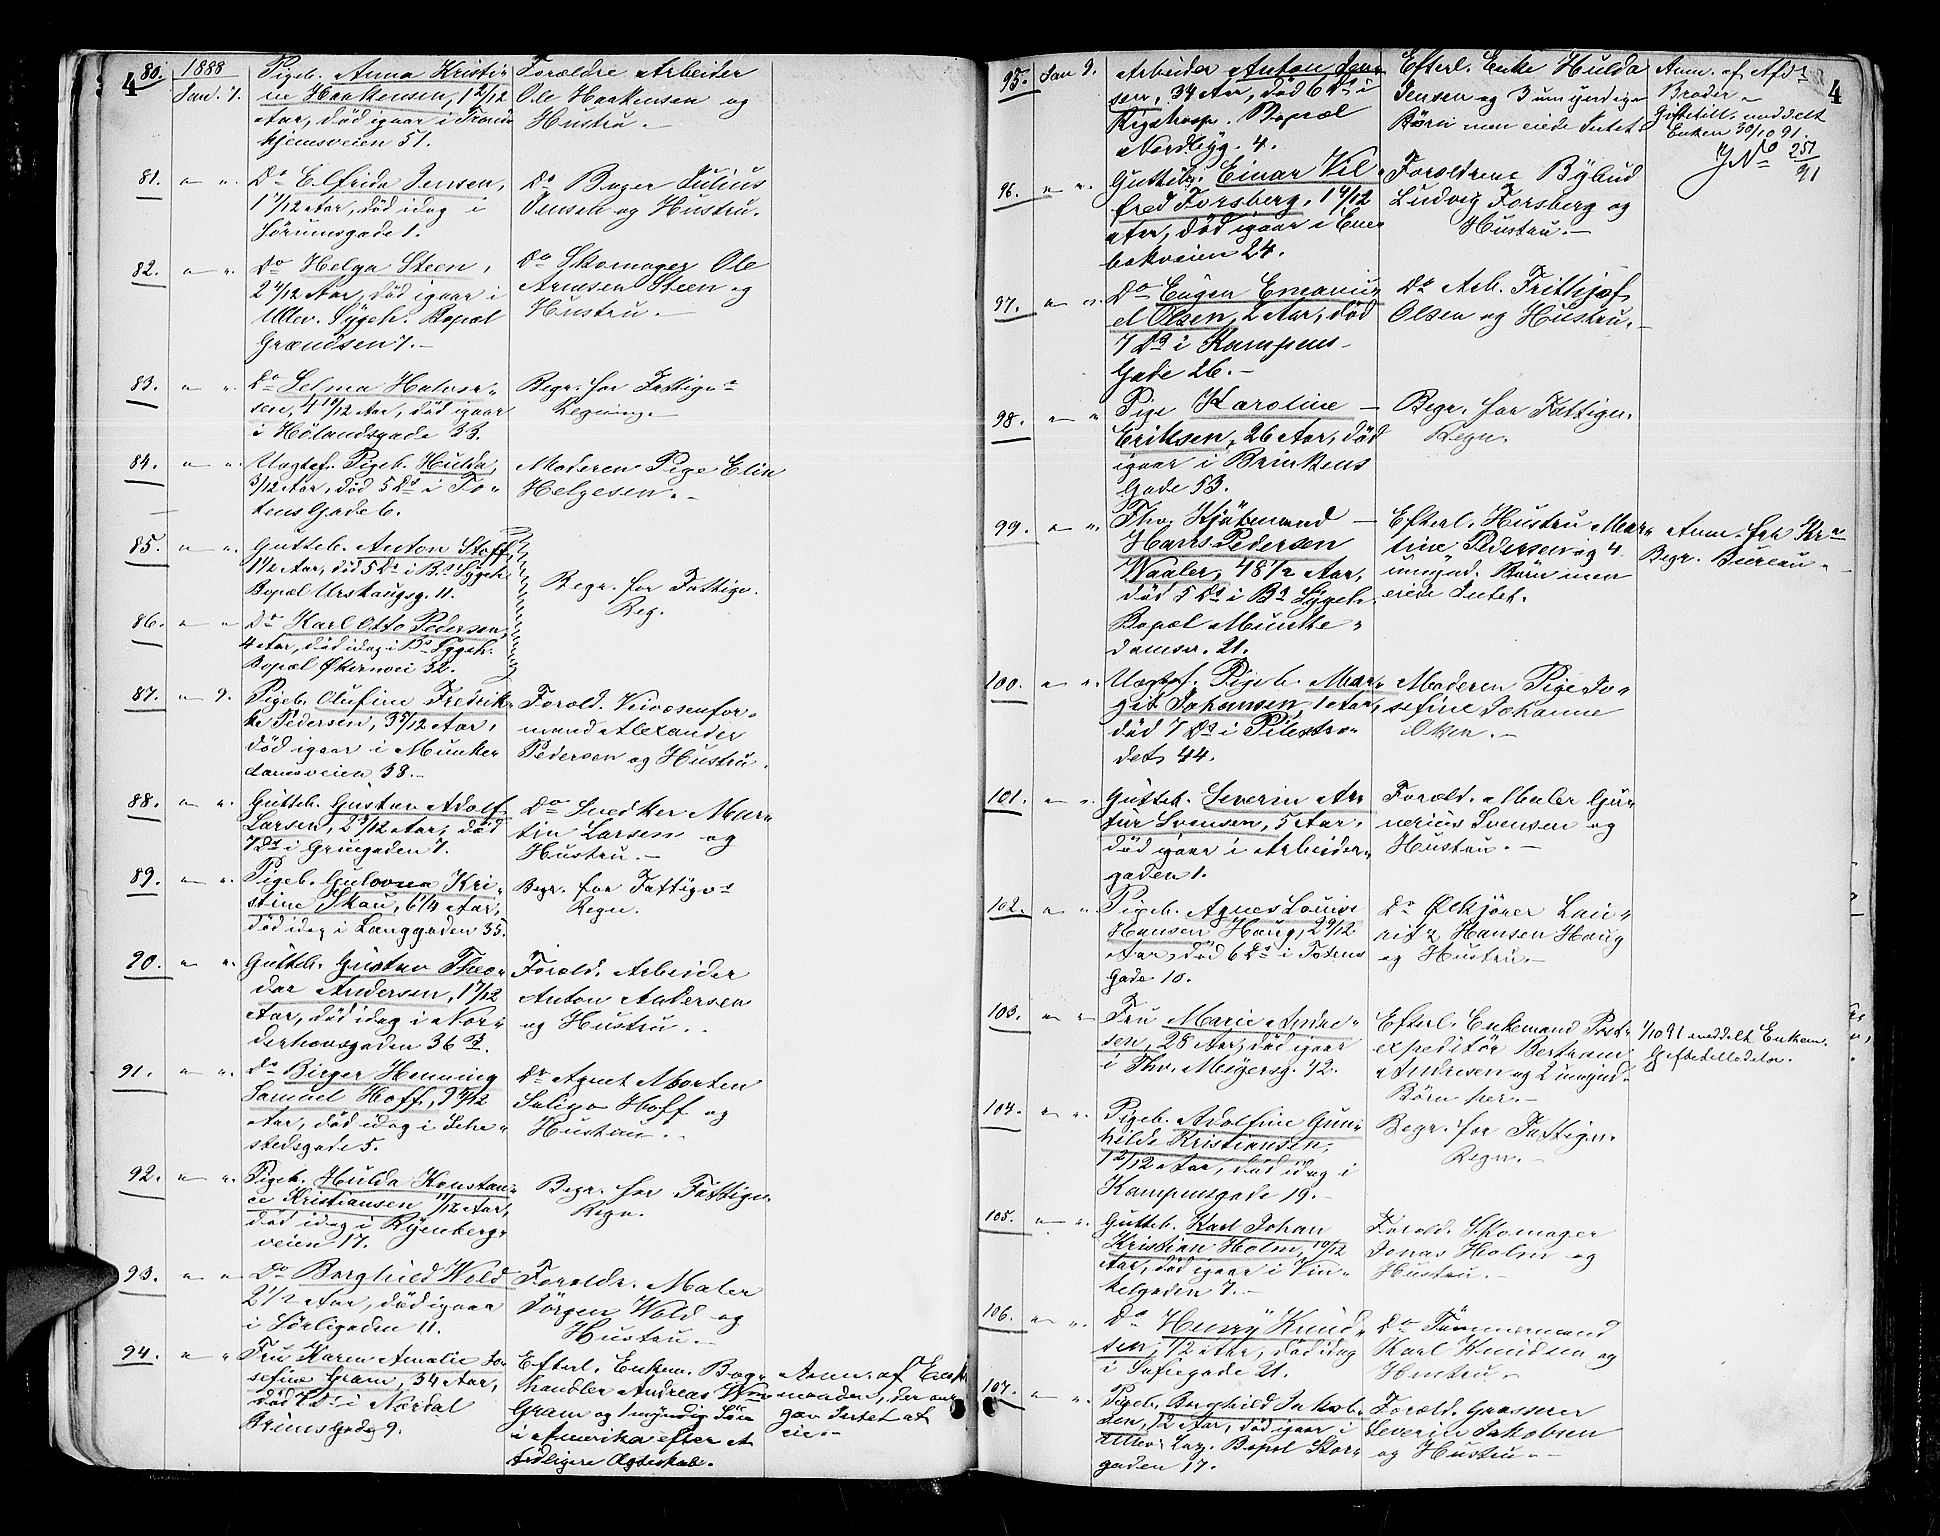 4
80. 1888 Jan. 7. Pigeb. Anna Kristi-
ne Haakensen, 1 2/12
Aar, død igaar i Trond-
hjemsveien 51.
Forældre Arbeider
Ole Haakensen og
Hustru.-
81. " " Do Elfrida Jensen,
1 7/12 Aar, død idag i
Sørumsgade 1.
Do Bager Julius
Jensen og Hustru.
82. " " Do Helga Steen,
2 4/12 Aar, død igaar i
Ullev. Sygeh. Bopæl
Grændsen 7.-
Do Skomager Ole
Arntsen Steen og
Hustru.-
83. " " Do Selma Halvor-
sen, 4 10/12 Aar, død igaar
i Hølandsgade 33.
Begr. for Fattigv.
Regning.-
84. " " Uægtef. Pigeb. Hulda,
3/12 Aar, død 5 Ds i To-
tens Gade 6.
Moderen Pige Elin
Helgesen.-
85. " " Gutteb. Anton Stoff,
1 1/2 Aar, død 5 Ds i Bs Sygeh.
Bopæl Urskougsg. 11.
Begr. for Fattigv.
Reg.
86. " " Do Karl Otto Pedersen,
4 Aar, død idag i Bs Sygeh.
Bopæl Økernvei 32.
87. " 9. Pigeb. Olufine Fredrik-
ke Pedersen, 3 5/12 Aar,
død igaar i Munke-
damsveien 38.-
Foræld. Veivæsenfor-
mand Alexander
Pedersen og Hustru.
88. " " Gutteb. Gustav Adolf
Larsen, 2 3/12 Aar, død
7 Ds i Gruegaden 7.
Do Snedker Mar-
tin Larsen og
Hustru.-
89. " " Pigeb. Gulovna Kri-
stine Skau, 6 1/4 Aar,
død idag i Langgaden 35.
Begr. for Fattigvs
Regn.
90. " " Gutteb. Gustav Theo-
dor Andersen, 1 7/12
Aar, død idag i Nor-
derhovsgaden 36 B.
Foræld. Arbeider
Anton Andersen
og Hustru.-
91. " " Do Birger Henning
Samuel Hoff, 9 9/12
Aar, død idag i Schw-
stedsgade 5.
Do Agent Morten
Selign Hoff og
Hustru.-
92. " " Pigeb. Hulda Konstan-
ce Kristiansen, 11/12 Aar,
død idag i Ryenberg-
veien 17.
Begr. for Fattigv.
Regn.
93. " " Do Borghild Wold
2 1/2 Aar, død igaar
i Sørligaden 11.
Forældr. Maler
Jørgen Wold og
Hustru.-
94. " " Fru Karen Amalie Jo-
sefine Gram, 34 Aar,
død 7 Ds i Nordal
Bruns Gade 9.
Efterl. Enkem. Bog-
handler Andreas Wm
Gram og 1 myndig Søn
i Amerika efter et
tidligere Ægteskab.
Anm. af Enke-
manden, der op-
gav Intet at
eie.-
4
95. Jan 9. Arbeider Anton Jen-
sen, 34 Aar, død 6 Ds i
Rigshosp. Bopæl
Nordbyg. 4.
Efterl. Enke Hulda
Jensen og 3 umyndige
Børn men eiede Intet.
Anm. af Afds
Broder.-
Giftetill. meddelt
Enken 30/10 91.
JNo 251/91
96. " " Gutteb. Einar Vil-
fred Forsberg, 1 4/12
Aar, død igaar i Ene-
bakveien 24.
Forældrene Bybud
Ludvig Forsberg og
Hustru.-
97. " " Do Eugen Emanu-
el Olsen, 2 Aar, død
7 Ds i Kampens-
Gade 26.-
Do Arb. Frithjof
Olsen og Hustru.-
98. " " Pige Karoline
Eriksen, 26 Aar, død
igaar i Brinkens
Gade 53.
Begr. for Fattigv.
Regn.
99. " " Fhv. Kjøbmand
Hans Pedersen
Waaler, 48 1/2 Aar,
død 5 Ds i Bs Sygeh.
Bopæl Munke-
damsv. 21.
Efterl. Hustru Mar-
tine Pedersen og 4
umynd. Børn men
eiede Intet.
Anm. fra Kra
Begr. Bureau.-
100. " " Uægtef. Pigeb. Mar-
git Johansen, 1 Aar,
død 7 Ds i Pilestræ-
det 44.
Moderen Pige Jo-
sefine Johanne
Olsen.-
101. " " Gutteb. Severin Ar-
tur Svensen, 5 Aar,
død igaar i Arbeider-
gaden 1.
Foræld. Maler Gu-
nerius Svensen og
Hustru.-
102. " " Pigeb. Agnes Louise
Hansen Haug, 2 9/12
Aar, død 6 Ds i Totens
Gade 10.
Do Ølkjører Lau-
ritz Hansen Haug
og Hustru.-
103. " " Fru Marie Andre-
sen, 28 Aar, død igaar
i Thv. Meyersg. 72.
Efterl. Enkemand Post-
expeditør Bertram
Andresen og 2 umynd.
Børn her.-
1/10 91 meddelt Enkem.
Giftetilladelse.
104. " " Pigeb. Adolfine Gun-
hilde Kristiansen,
1 2/12 Aar, død idag i
Kampensgade 19.-
Begr. for Fattigv.
Regn.-
105. " " Gutteb. Karl Johan
Kristian Holm, 10/12
Aar, død igaar i Vin-
kelgaden 7.-
Foræld. Skomager
Jonas Holm og
Hustru.-
106. " " Do Henry Knud-
sen, 1/2 Aar, død idag
i Sofiegade 21.
Do Tømmermand
Karl Knudsen og
Hustru.-
107. " " Pigeb. Borghild Jakob-
sen, 12 Aar, død igaar i
Ullev. Laz. Bopæl Stor-
gaden 17.
Foræld. Grosserer
Severin Jakobsen
og Hustru.-